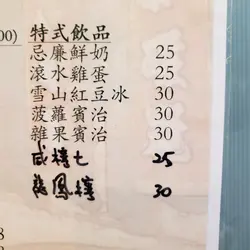 00) 特式飲品
忌廉鮮奶 25
滾水雞蛋 25
雪山紅豆冰 30
菠蘿賓治 30
雜果賓治 30
咸檸七 25
龍鳳檸 30
8